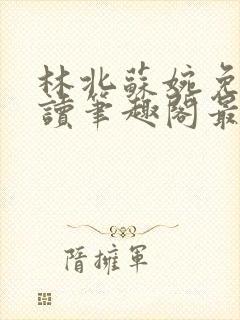 林北蘇婉免
讀筆趣閣最
隋擁軍